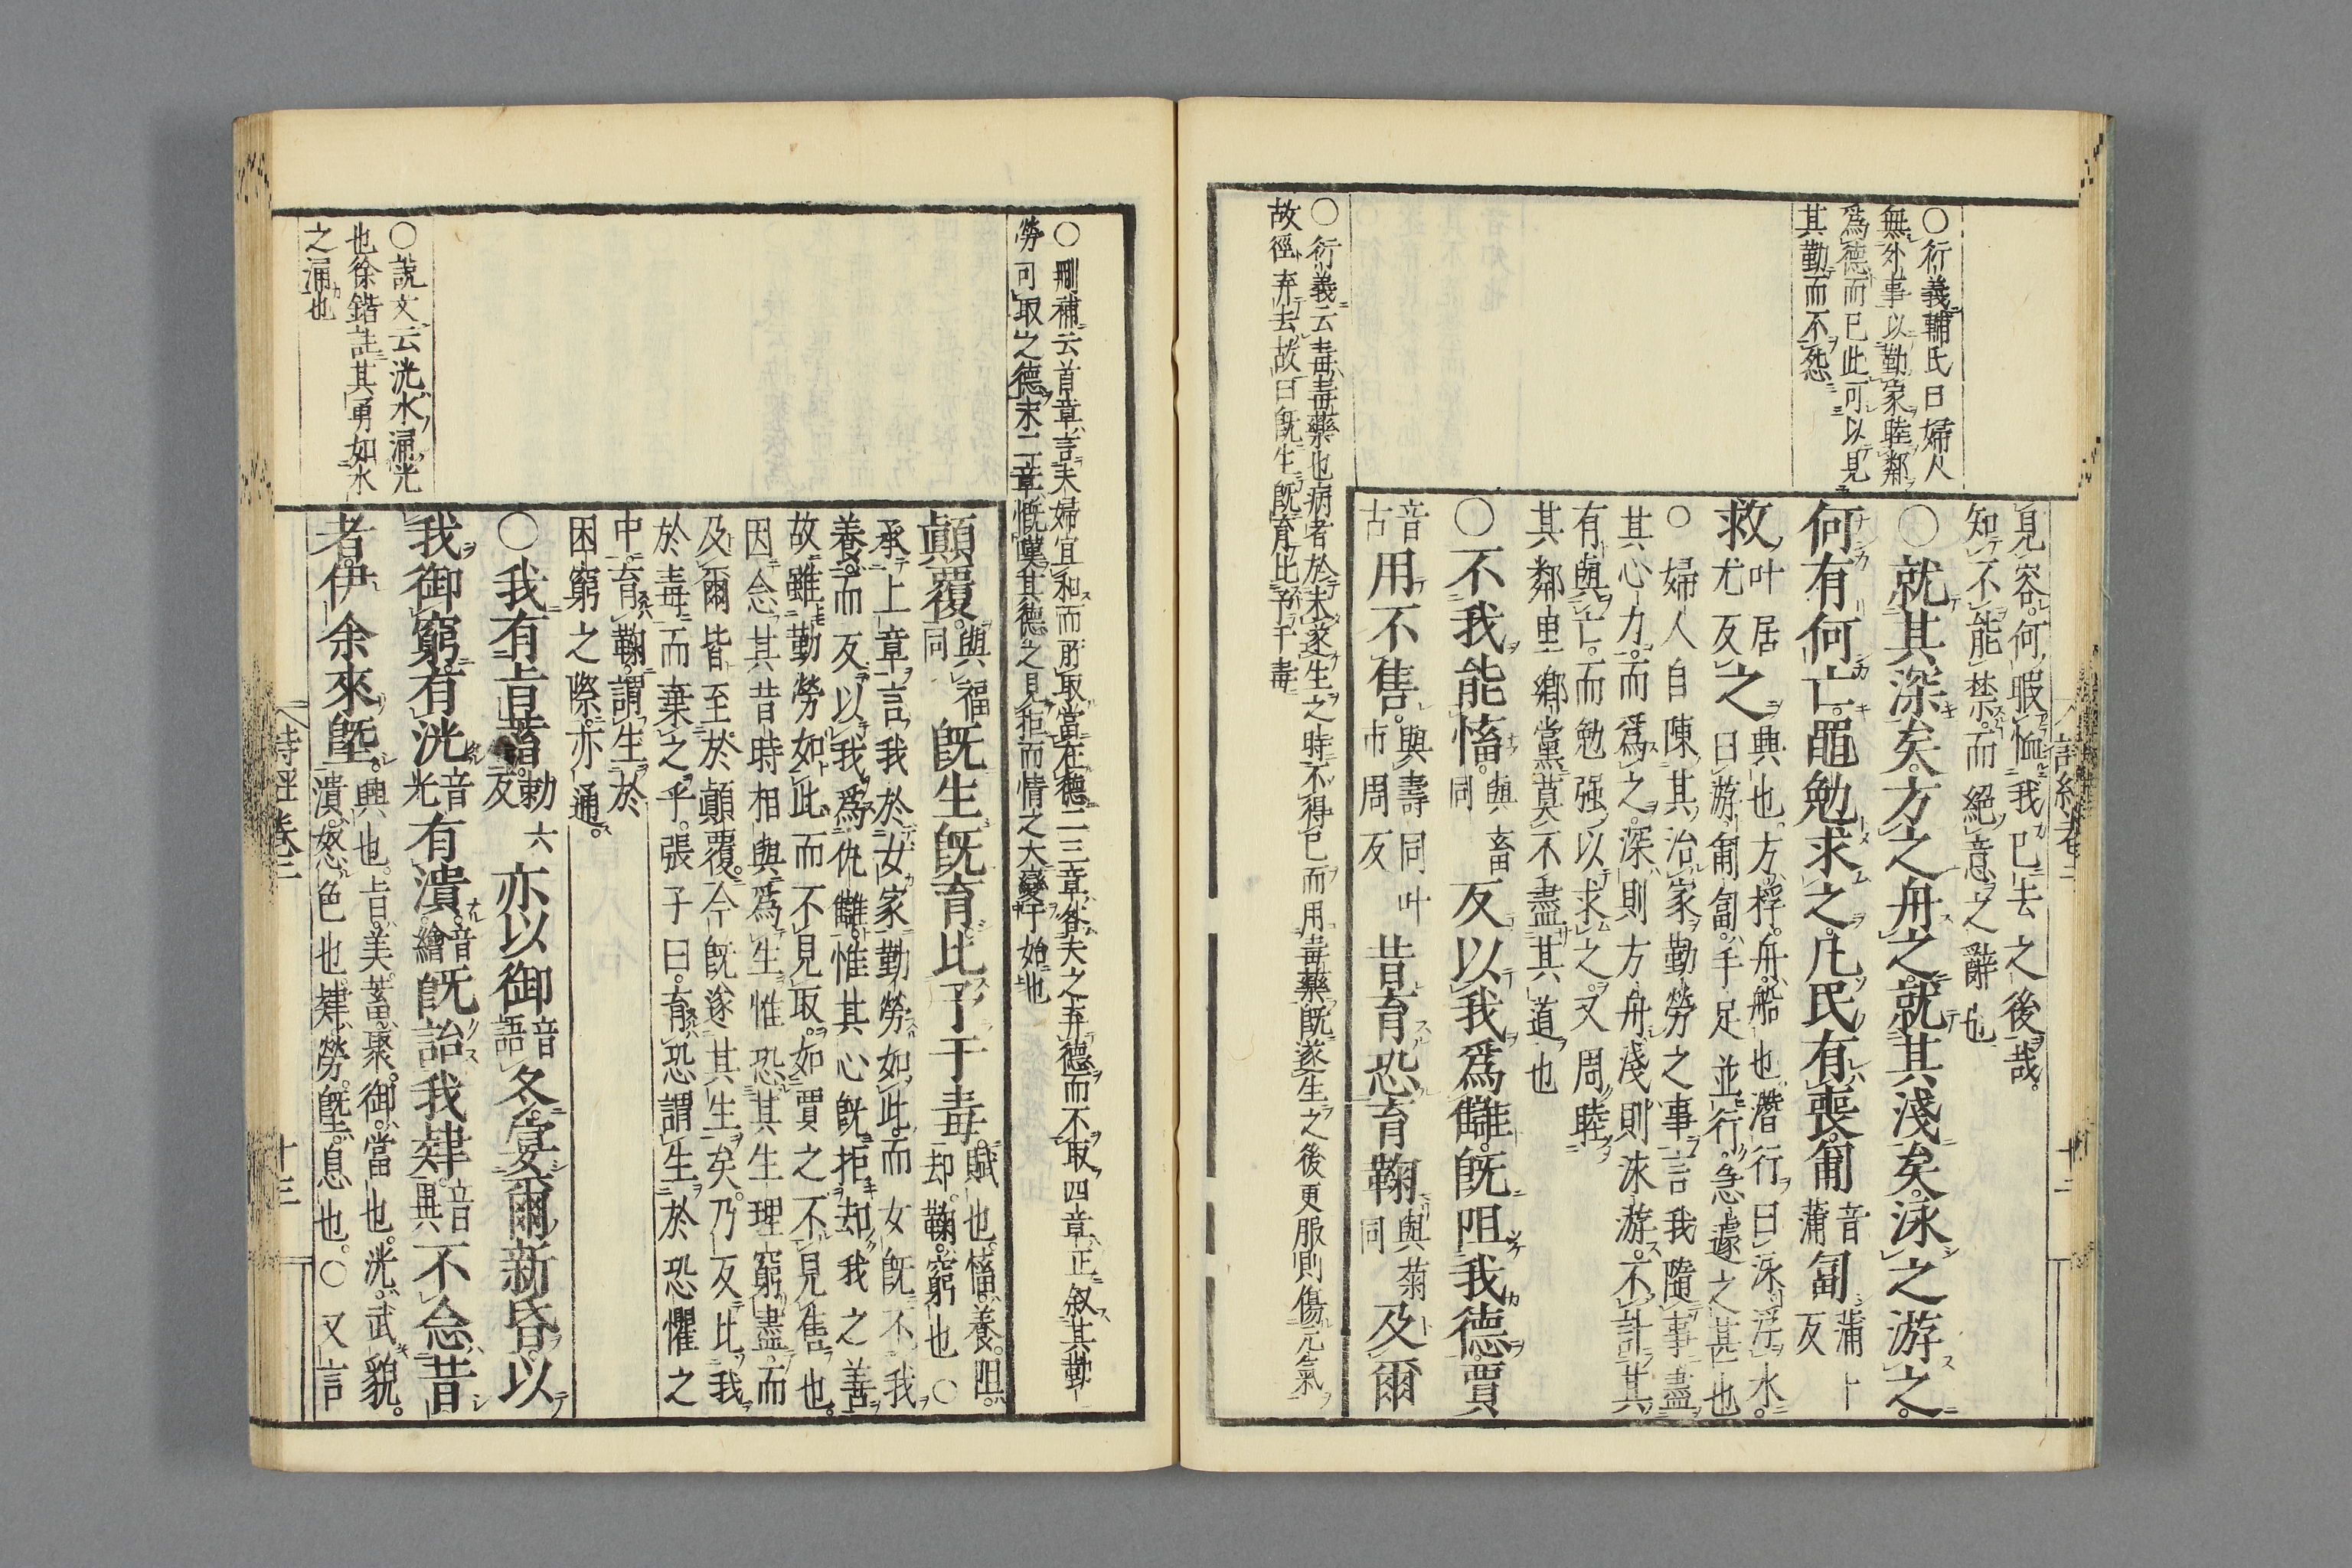 ○衍義輔氏曰婦人
無外事以勤家睦鄰
爲德而已此可以見
其勤而不怨
見容何暇恤我已去之後哉
知不能禁而絕意之辭也
○就其深矣方之舟之就其淺矣泳之游之
何有何亡黽勉求之凡民有喪匍音蒲匐蒲卜反
救叶居尤反之興也方桴舟船也潛行曰泳浮水曰游匍匐手足並行急遽之甚也
○婦人自陳其治家勤勞之事言我隨事盡
其心力而爲之深則方舟淺則泳游不計其
有與亡而勉强以求之又周睦
其鄰里鄉黨莫不盡其道也
○不我能慉與畜同反以我爲讎旣阻我德賈
音古用不售與壽同叶市周反昔育恐育鞫與菊同及爾
○衍義云毒毒藥也病者於未遂生之時不得已而用毒藥旣遂生之後更服則傷元氣
故徑弃去故曰旣生旣育比予于毒
○刪補云首章言夫婦宜和而所取當在德二三章咎夫之弃德而不取四章正叙其勤
勞可取之德末二章慨嘆其德之見拒而情之大變于始也
顚覆與福同旣生旣育比予于毒賦也慉養阻却鞫窮也○
承上章言我於女家勤勞如此而女旣不我
養而反以我爲仇讎惟其心旣拒却我之善
故雖勤勞如此而不見取如賈之不見售也
因念其昔時相與爲生惟恐其生理窮盡而
及爾皆至於顚覆今旣遂其生矣乃反比我
於毒而棄之乎張子曰育恐謂生於恐懼之
中育鞫謂生於
困窮之際亦通
○我有旨蓄勅六反亦以御音語冬宴爾新昏以
我御窮有洸音光有潰音繪旣詒我肄音異不念昔
者伊余來墍興也旨美蓄聚御當也洸武貌潰怒色也肄勞墍息也○又言
○說文云洸水涌光
也徐鍇註其勇如水
之涌也
詩經卷三
十三